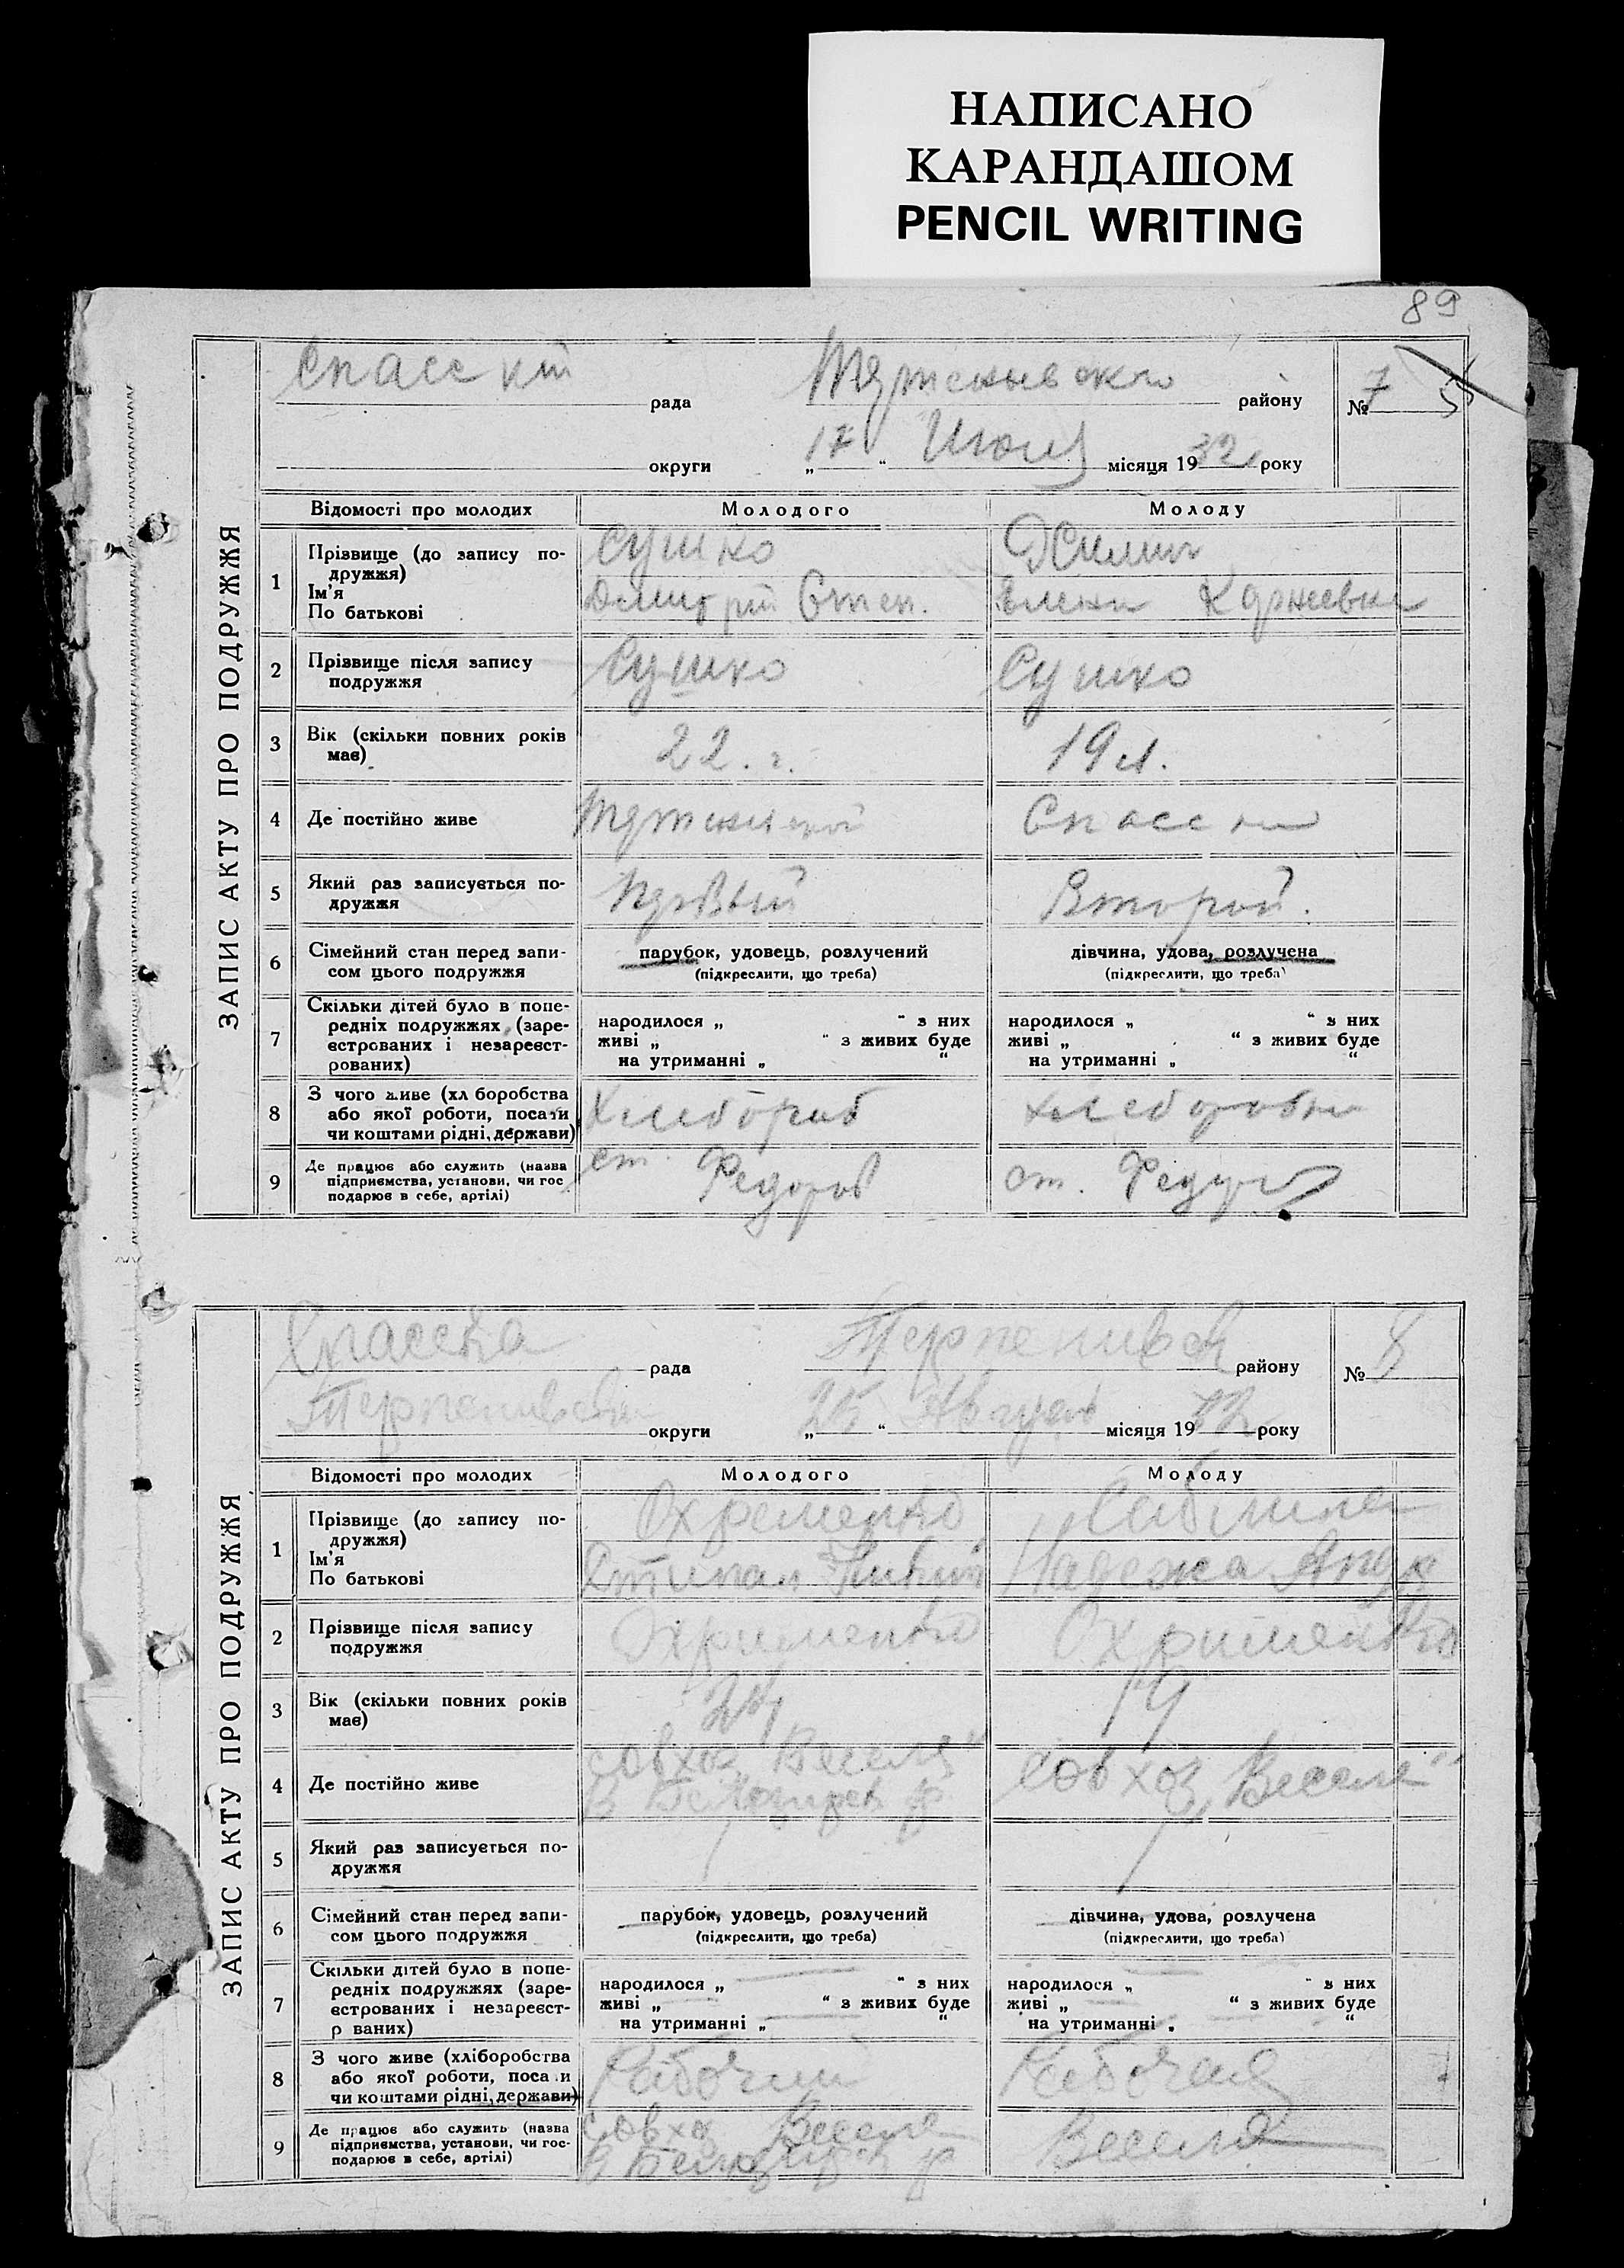 НАПИСАНО
КАРАНДАШОМ
PENCIL WRITING
89
ЗАПИС АКТУ ПРО ПОДРУЖЖЯ
Спасскій рада району № 7
округи „17“ Июля місяця 1932 року
Відомості про молодих Молодого Молоду
1 Прізвище (до запису по-
дружжя)
Ім'я
По батькові
Сушко
Дмитрій Степ. Елена
2 Прізвище після запису
подружжя
Сушко Сушко
3 Вік (скільки повних років
має)
22.г. 19 л.
4 Де постійно живе
5 Який раз записується по-
дружжя
Первый Второй.
6 Сімейний стан перед запи-
сом цього подружжя
парубок, удовець, розлучений дівчина, удова, розлучена
(підкреслити, що треба) (підкреслити, що треба)
7 Скільки дітей було в попе-
редніх подружжях (заре-
єстрованих і незареєст-
рованих)
народилося „ “ з них народилося „ “ з них
живі „ “ з живих буде живі „ “ з живих буде
на утриманні „ “ на утриманні „ “
8 З чого живе (хл боробства
або якої роботи, посади
чи коштами рідні, держави)
Хлебороб
9 Де працює або служить (назва
підприємства, установи, чи гос
подарює в себе, артілі)
ЗАПИС АКТУ ПРО ПОДРУЖЖЯ
рада району № 8
округи місяця 1932 року
Відомості про молодих Молодого Молоду
1 Прізвище (до запису по-
дружжя)
Ім'я
По батькові
Охременко
2 Прізвище після запису
подружжя
Охрименко Охрименко
3 Вік (скільки повних років
має)
19
4 Де постійно живе
совхоз „Веселе“ Совхоз „Веселе“
5 Який раз записується по-
дружжя
1 1
6 Сімейний стан перед запи-
сом цього подружжя
парубок, удовець, розлучений дівчина, удова, розлучена
(підкреслити, що треба) (підкреслити, що треба)
7 Скільки дітей було в попе-
редніх подружжях (заре-
єстрованих і незареєст-
р ваних)
народилося „ “ з них народилося „ “ з них
живі „ “ з живих буде живі „ “ з живих буде
на утриманні „ “ на утриманні „ “
8 З чого живе (хліборобства
або якої роботи, поса и
чи коштами рідні, держави)
Рабочий Рабочая
9 Де працює або служить (назва
підприємства, установи, чи гос-
подарює в себе, артілі)
Совхоз Веселе Веселе